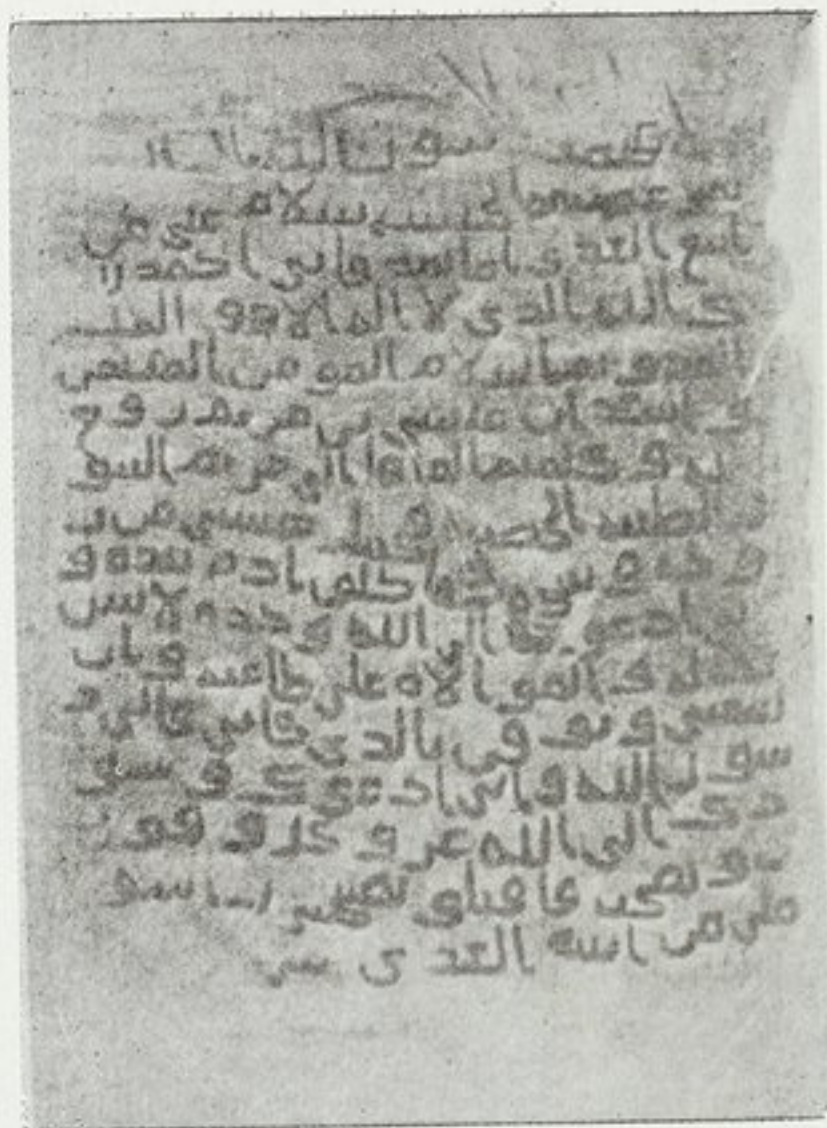 محمد رسول
عظيم الحبشة سلام على من
اتبع الهدى اما بعد فاني احمد ا
ليك الله الذي لا اله الا هو الملك
القدوس السلام المومن المهيمن
و اشهد ان عيسى بن مريم روح
و كلمته القاها الى مريم البتو
ل الطيبة الحصينة فحملت بعيسى من ر
و حه و نفخه كما خلق ادم بيده و
اني ادعوك الى الله وحده لا شر
يك له و الموالاة على طاعته و ان
تتبعني و توقن بالذي جاني فاني ر
سول الله و اني ادعوك و جنو
دك الى الله عز و جل و قد
و نصحت فاقبلوا نصيحتي و السلام
على من اتبع الهدى